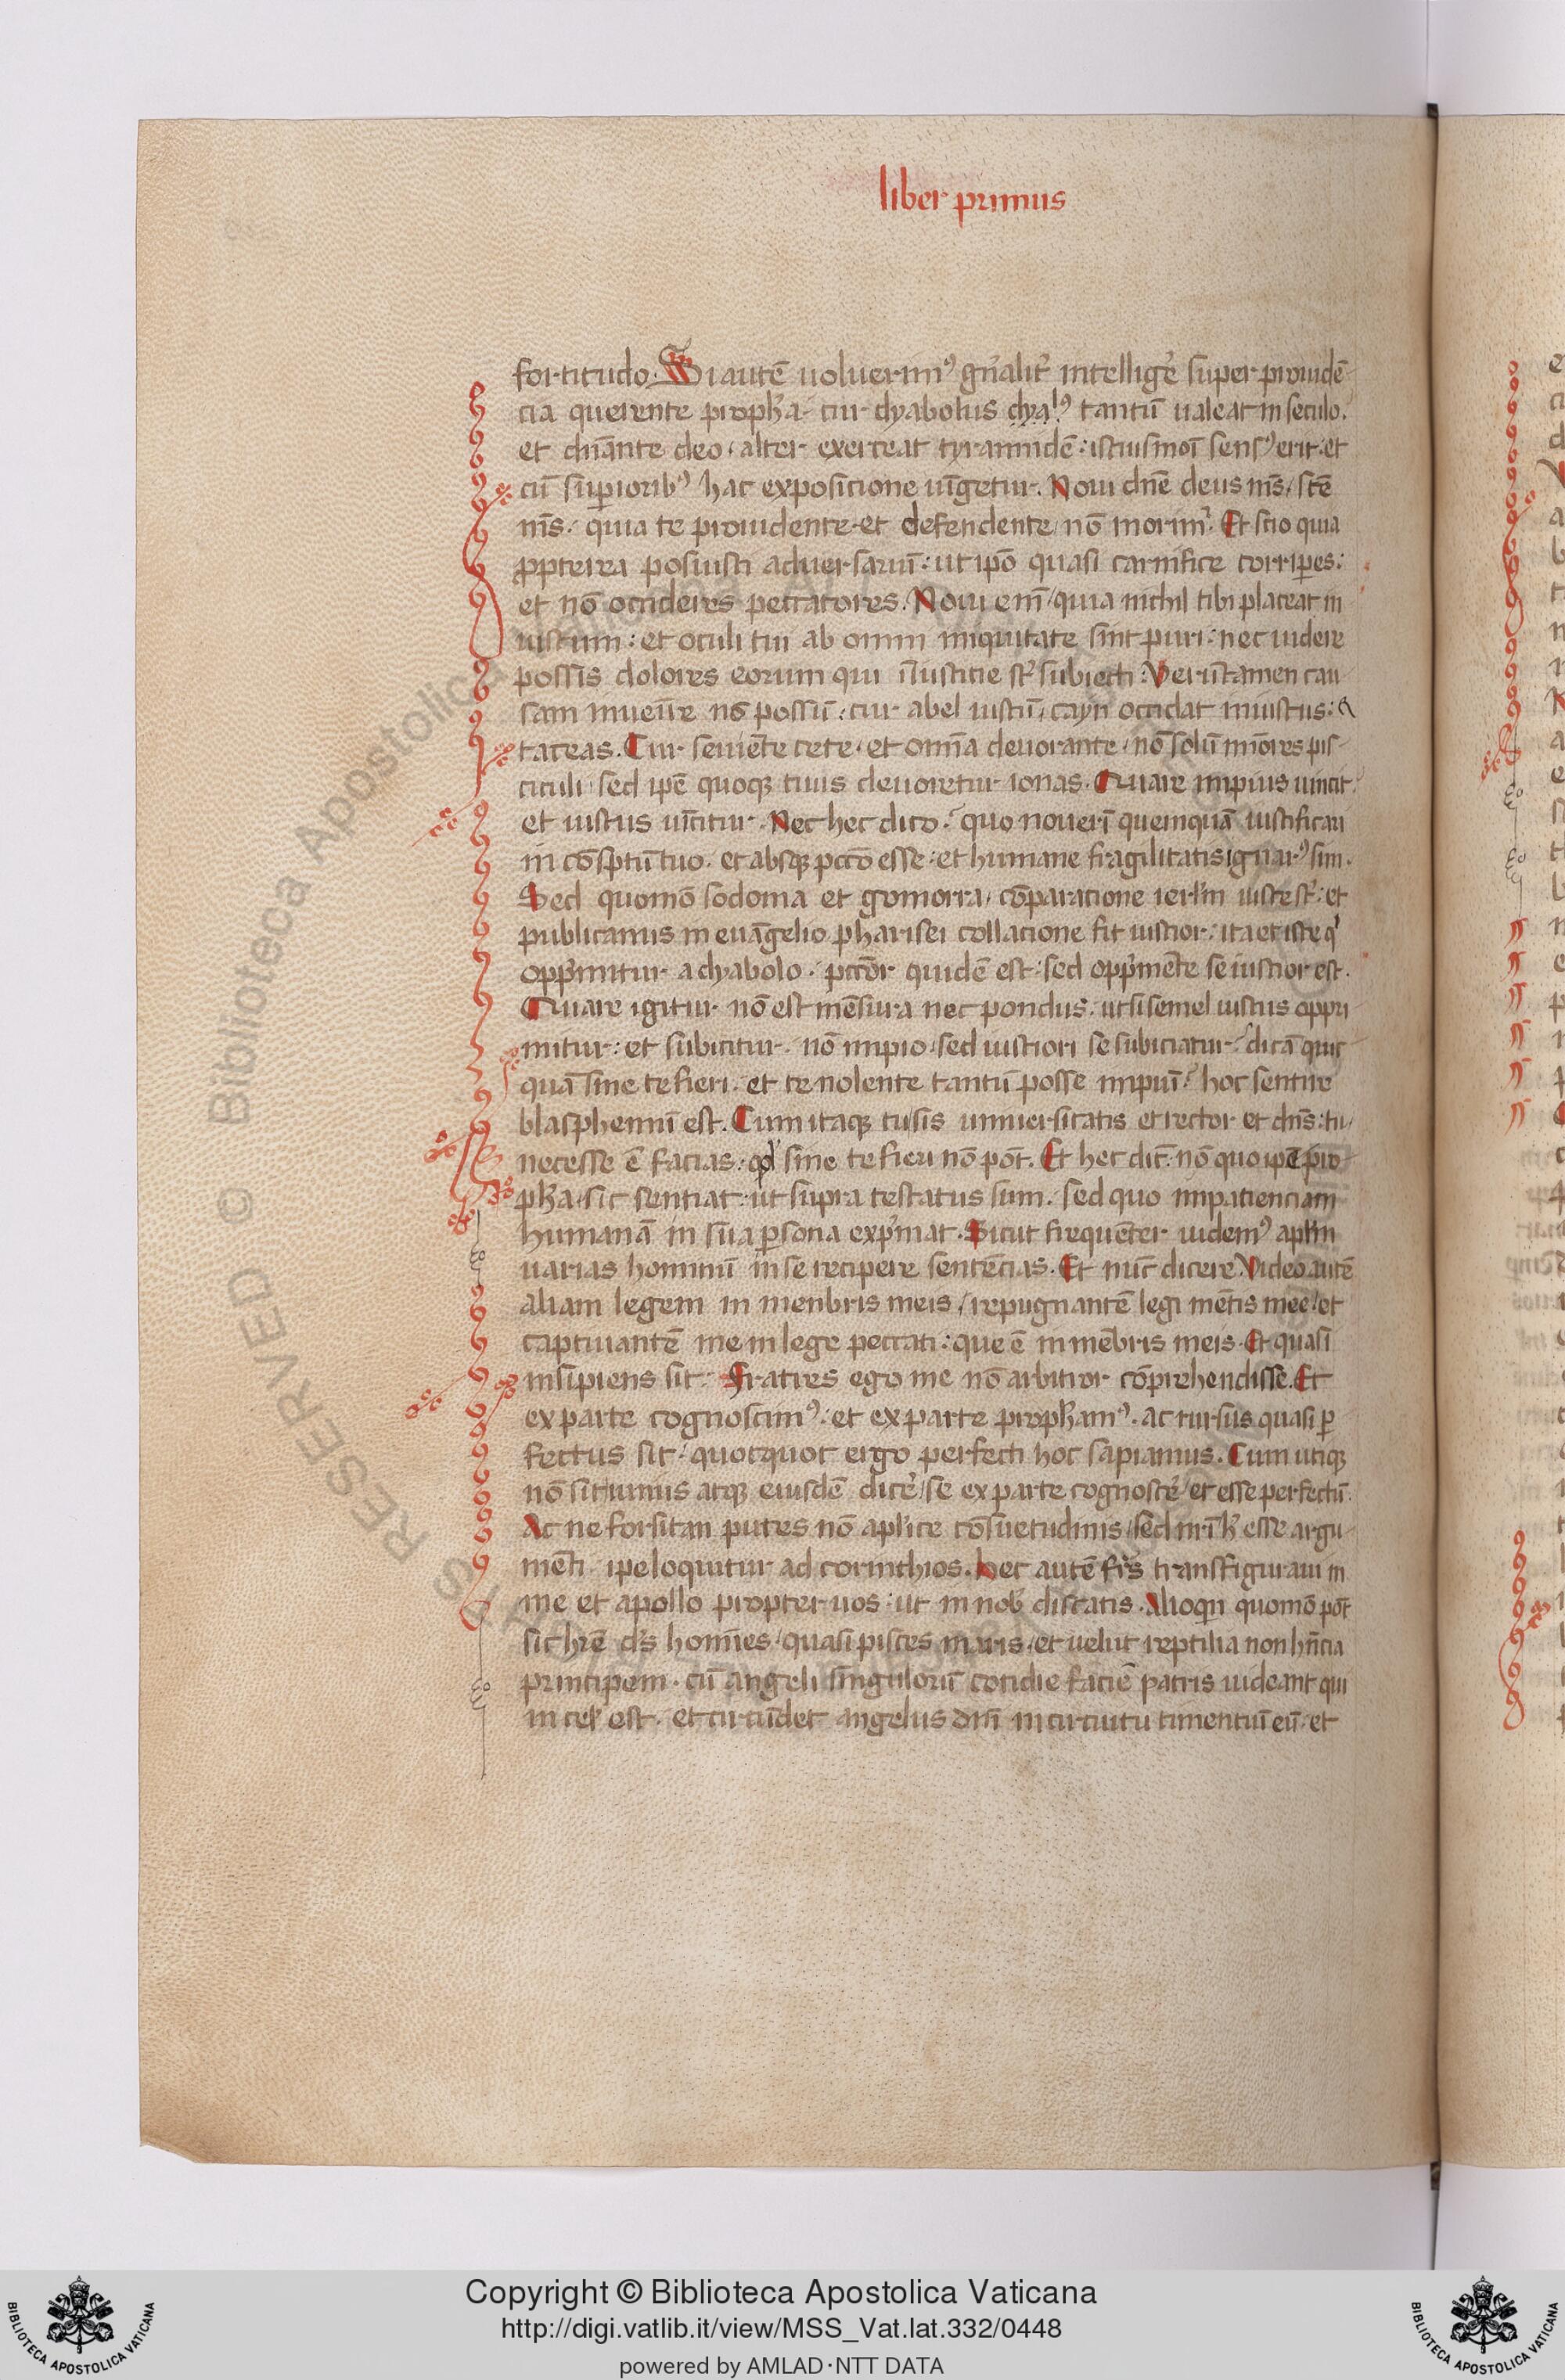 liber primus
fortitudo. Si autē uoluerimꝰ gn̄alit᷒ intellig̓e super prouidē-
cia querente propħa cur dyabolus dyalꝰ tantū ualeat in seculo.
et dn̄ante deo, alter exerceat tyrannidē: istiusmōi sensꝰ erit. et
cū suꝑioribꝰ hac exposicione iūgetur. Noui dn̄e deus ms̄, scē
ms̄, quia te prouidente et defendente nō morimͬ. Et scio quia
ꝓpterea posuisti aduersariū: ut ip̄o quasi carnifice corriꝑes:
et nō occideres peccatores. Noui em̄, quia nichil tibi placeat in
iustum: et oculi tui ab omni iniquitate sint puri: nec uidere
possis dolores eorum qui īiusticie st̄ subiecti: Verūtamen cau-
sam inuenire nō possū: cur abel iustū, cayn occidat iniustus: &
taceas. Cur seuiēte cete, et om̄a deuorante, nō solū mīores pis-
ciculi, sed ip̄e quoqꝫ tuus deuoretur ionas. Quare impius uincit.
et iustus uīcitur. Nec hec dico, quo nouerī quemquā iustificari
in cōsptu tuo. et absqꝫ pctō esse: et humane fragilitatis ignarꝰ sim.
Sed quomō sodoma et gomorra, cōparatione ierl'm iuste st̄: et
publicanus in euāgelio pharisei collacione fit iustior: ita et iste qͥ
opp̍mitur a dyabolo, pctōr quidē est: sed opp̍mēte se iustior est.
Quare igitur nō est mēsura nec pondus: ut si semel iustus oppri
mitur: et subicitur, nō impio, sed iustiori se subiciatur. dicā quic
quā sine te fieri. et te nolente tantū posse impiū? hoc sentire
blasphemiū est. Cum itaqꝫ tu sis uniuersitatis et rector et dn̄s: tu
necesse ē facias: qd̓ sine te fieri nō pōt. Et hec dic̄: nō quo ip̄e pro
pħa sic sentiat: ut supra testatus sum. sed quo impatienciam
humanā in sua ꝑsona exp̍mat. Sicut frequēter uidemꝰ apl'm
uarias hominū in se recipere sentēcias. Et nūc dicere. Video autē
aliam legem in menbris meis, repugnantē legi mētis mee, et
captiuantē me in lege peccati: que ē in mēbris meis. Et quasi
insipiens sit. Fratres ego me nō arbitror cōprehendisse. Et
ex parte cognoscimꝰ: et ex parte prophamꝰ. ac rursus quasi ꝑ
fectus sit, quotquot ergo perfecti hoc sapiamus. Cum utiqꝫ
nō sit unius atqꝫ eiusdē dic̓e, se ex parte cognosc̓e, et esse perfectū.
Ac ne forsitan putes nō apl'ice cōsuetudinis, sed nr̄i ħ esse argu-
mēti ipe loquitur ad corinthios. hec autē frs̄ transfiguraui in
me et apollo propter uos: ut in nob̓ discatis. Alioqn̄ quomō pōt
sic hr̄e d's homīes, quasi pisces maris, et uelut reptilia non hn̄cia
principem. cū angeli singulorū cotidie faciē patris uideant qui
in cel' est. et circūdet angelus dn̄i in circuitu timentiū eū: et
BIBLIOTECA APOSTOLICA VATICANA
Copyright © Biblioteca Apostolica Vaticana
http://digi.vatlib.it/view/MSS_Vat.lat.332/0448
powered by AMLAD·NTT DATA
BIBLIOTECA APOSTOLICA VATICANA